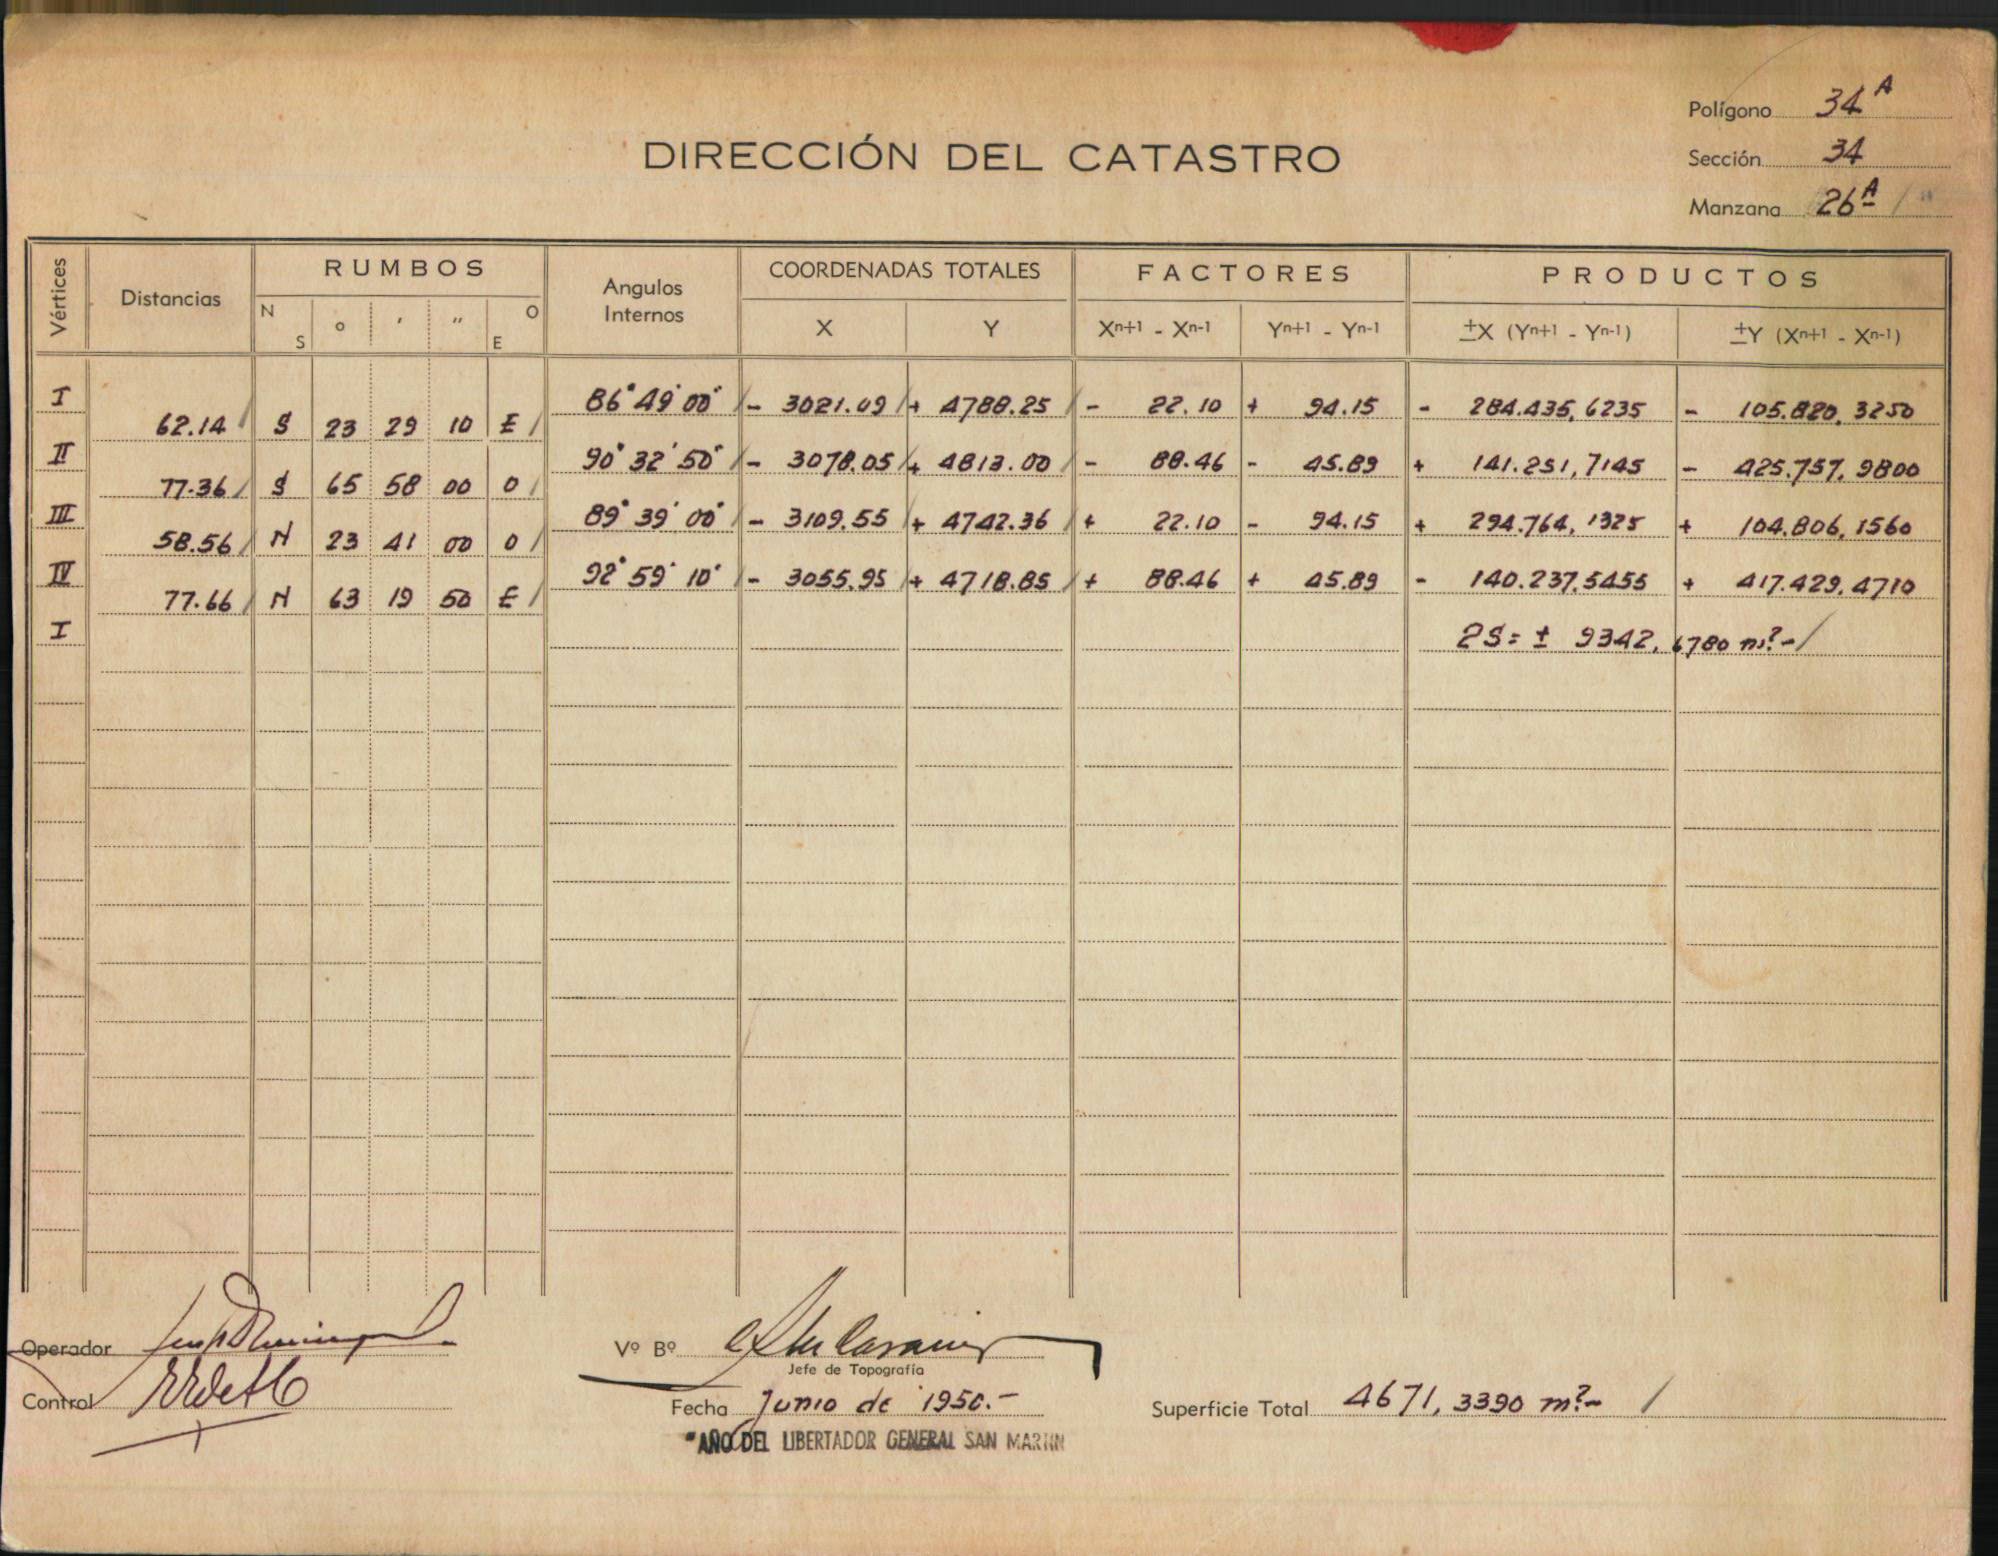 Polígono 34 A
DIRECCIÓN DEL CATASTRO
Sección 34
Manzana 26 A /
Vértices Distancias RUMBOS Angulos Internos COORDENADAS TOTALES FACTORES PRODUCTOS
N S ° ' " O E X Y Xn+1 - Xn-1 Yn+1 - Yn-1 ±X (Yn+1 - Yn-1) ±Y (Xn+1 - Xn-1)
I 86° 49' 00" / - 3021.09 / + 4788.25 / - 22.10 + 94.15 - 284.435,6235 - 105.820,3250
62.14 / S 23 29 10 E /
II 90° 32' 50" / - 3078.05 / + 4813.00 / - 88.46 - 45.89 + 141.251,7145 - 425.757,9800
77.36 / S 65 58 00 O /
III 89° 39' 00" / - 3109.55 / + 4742.36 / + 22.10 - 94.15 + 294.764,1325 + 104.806,1560
58.56 / N 23 41 00 O /
IV 92° 59' 10" / - 3055.95 / + 4718.85 / + 88.46 + 45.89 - 140.237,5455 + 417.429,4710
77.66 / N 63 19 50 E /
I 2S = ± 9342,6780 m².- /
Operador
Vº Bº
Jefe de Topografía
Control
Fecha Junio de 1950.-
Superficie Total 4671,3390 m².- /
"AÑO DEL LIBERTADOR GENERAL SAN MARTIN